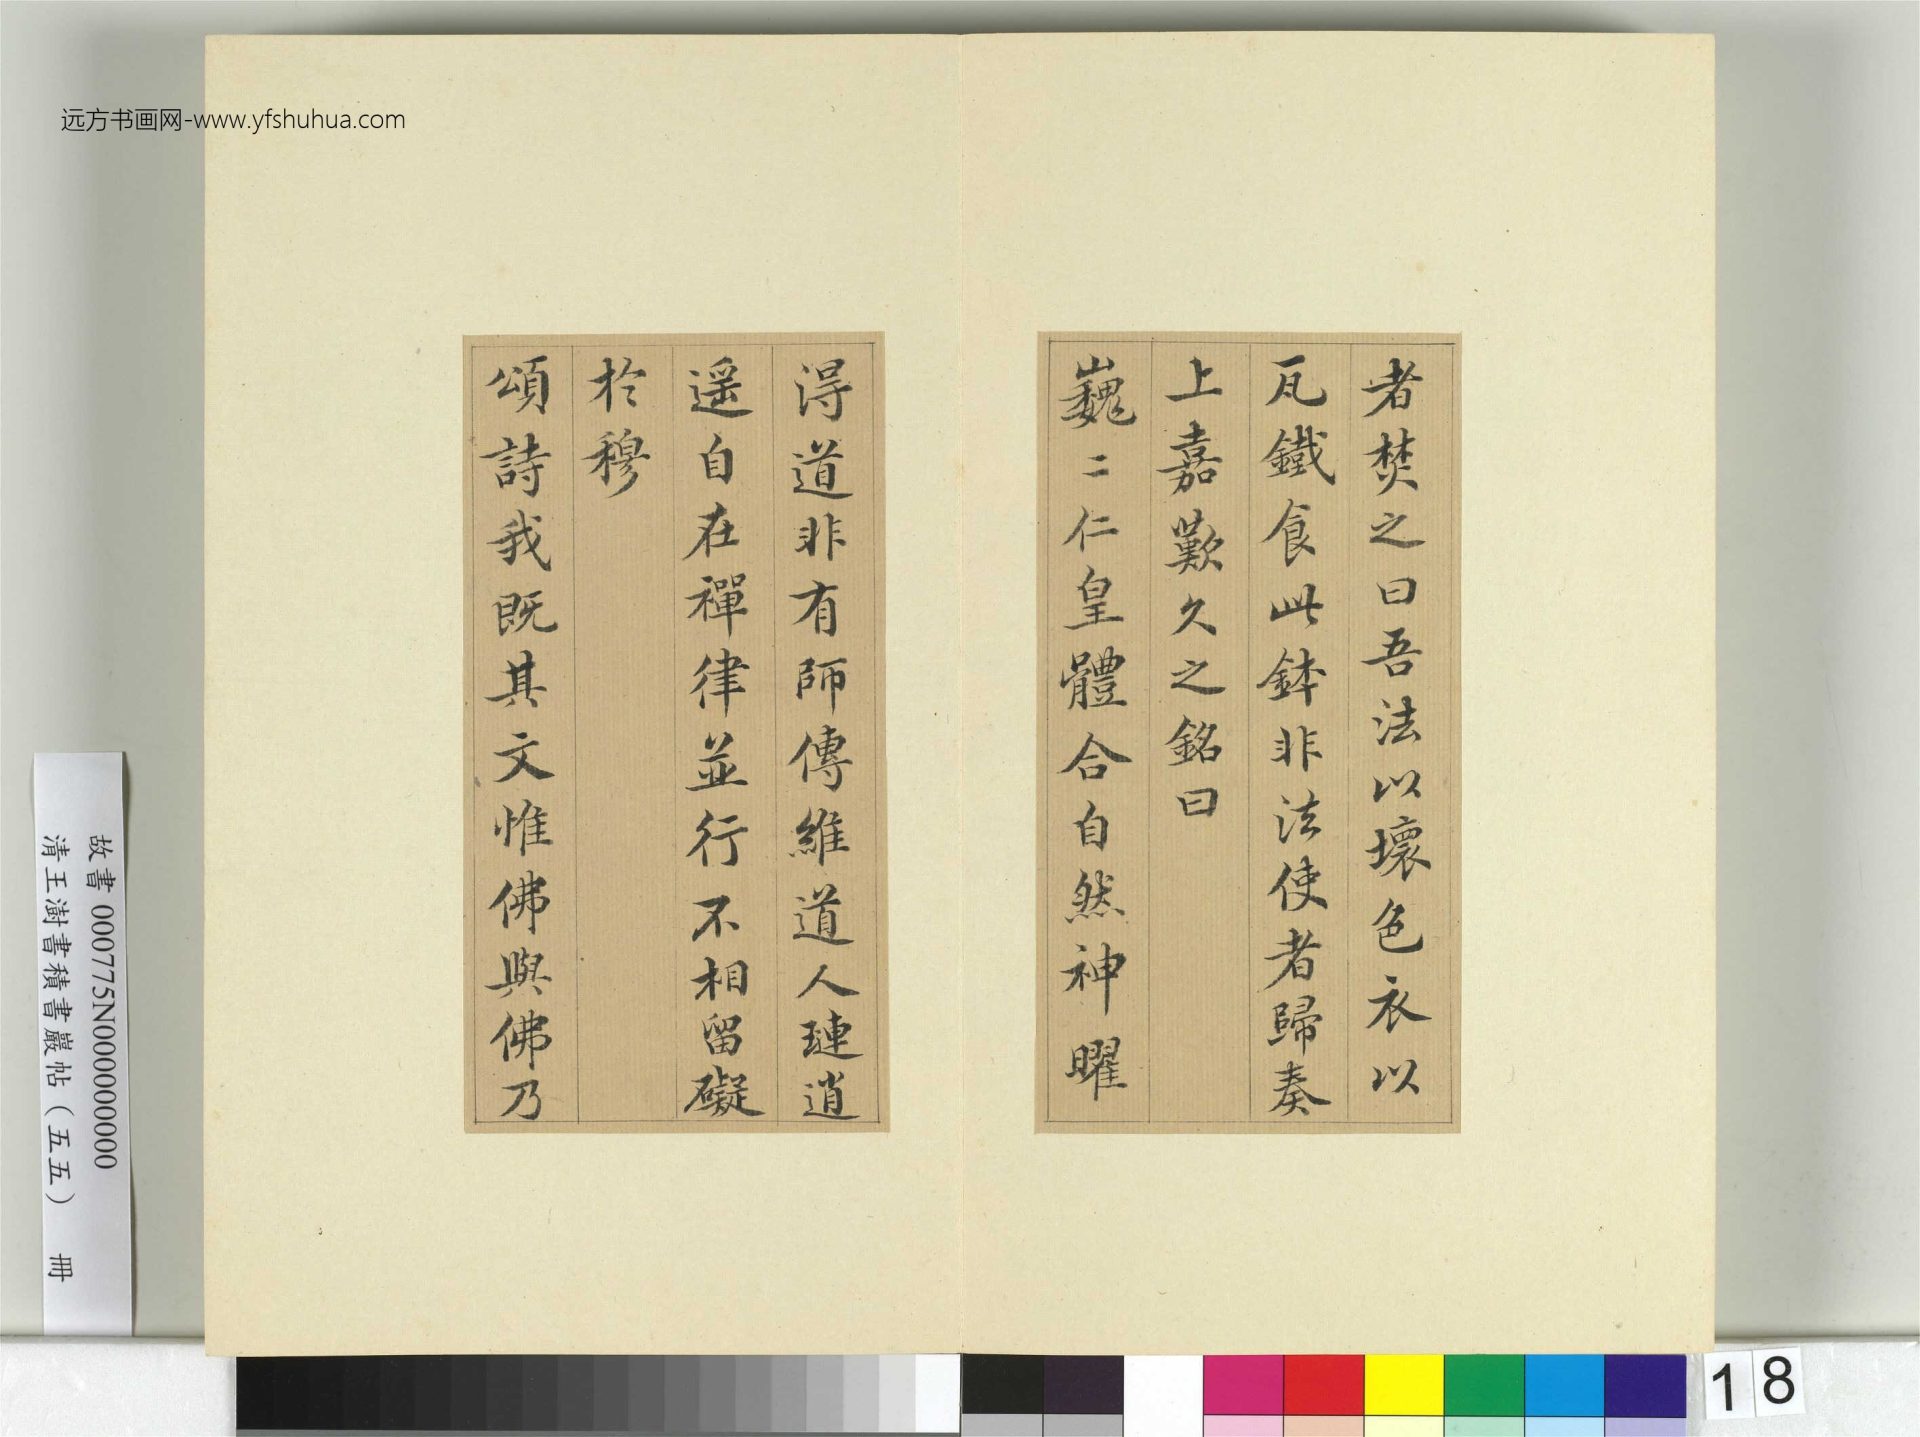 者焚之曰吾法以壞色衣以
瓦鐵食此鉢非法使者歸奏
上嘉歎久之銘曰
巍二仁皇體合自然神曜
得道非有師傳維道人璉逍
遥自在禪律並行不相留礙
於穆
頌詩我既其文惟佛與佛乃
远方书画网-www.yfshuhua.com
故書 000775N000000000
清王澍書積書巖帖（五五） 冊
18